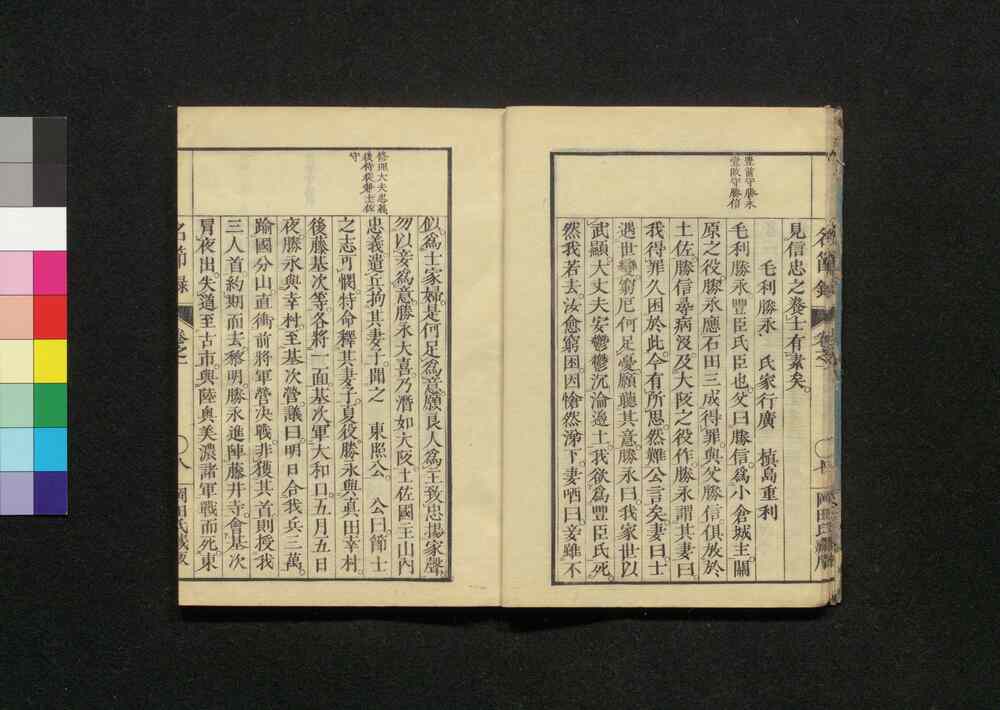 見信忠之養士有素矣。
毛利勝永　氏家行廣　槙島重利
毛利勝永豐臣氏臣也。父曰勝信爲小倉城主。關
原之役勝永應石田三成得罪與父勝信俱放於
土佐。勝信尋病沒及大阪之役作。勝永謂其妻曰。
我得罪久困於此。今有所思。然難公言矣。妻曰。士
遇世變窮厄何足憂。願聽其意。勝永曰。我家世以
武顯。大丈夫安鬱鬱沉淪邊土。我欲爲豐臣氏死。
然我若去汝愈窮困。因愴然涕下。妻哂曰。妾雖不
豐前守勝永
壹岐守勝信
名節錄
似。爲士家婦。是何足爲意。願良人爲主致忠揚家聲。
勿以妾爲意。勝永大喜。乃潛如大阪。土佐國主山內
忠義遣兵拘其妻子。聞之　東照公。　公曰。節士
之志可憫。特命釋其妻子。夏役勝永與眞田幸村。
後藤基次等各將一面。基次軍大和口。五月五日
夜勝永與幸村。至基次營議曰。明日合我兵三萬。
踰國分山直衝前將軍營決戰。非獲其首則授我
三人首。約期而去。黎明。勝永進陣藤井寺。會基次
冒夜出。失道至古市。與陸奧美濃諸軍戰而死。東
修理大夫忠義
後待從
守
名節錄
卷之一
八
岡田氏藏版